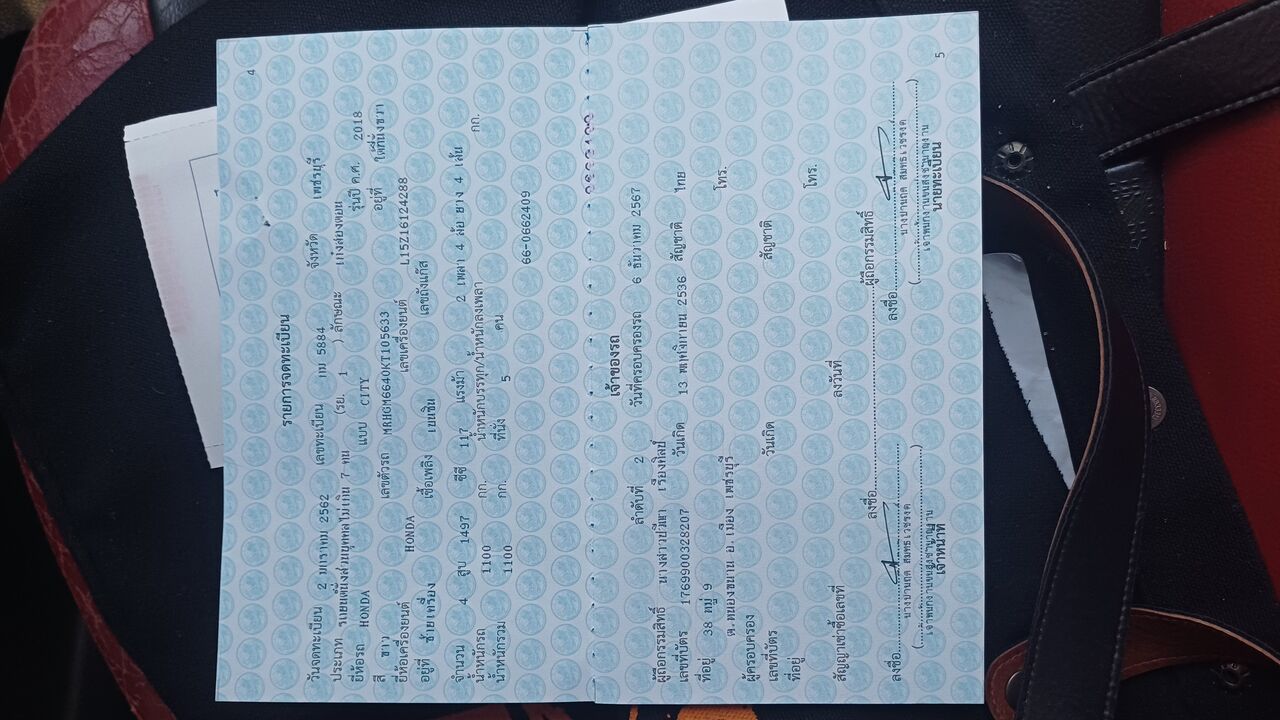 4
รายการจดทะเบียน
วันจดทะเบียน 2 มกราคม 2562 เลขทะเบียน กม 5884 จังหวัด เพชรบุรี
ประเภท รถยนต์นั่งส่วนบุคคลไม่เกิน 7 คน (รย. 1 ) ลักษณะ เก๋งสองตอน
ยี่ห้อรถ HONDA แบบ CITY รุ่นปี ค.ศ. 2018
สี ขาว เลขตัวรถ MRHGM6640KT105633 อยู่ที่ ใต้ที่นั่งขวา
ยี่ห้อเครื่องยนต์ HONDA เลขเครื่องยนต์ L15Z16124288
อยู่ที่ ซ้ายเครื่อง เชื้อเพลิง เบนซิน เลขถังแก๊ส
จำนวน 4 สูบ 1497 ซีซี 117 แรงม้า 2 เพลา 4 ล้อ ยาง 4 เส้น
น้ำหนักรถ 1100 กก. น้ำหนักบรรทุก/น้ำหนักลงเพลา กก.
น้ำหนักรวม 1100 กก. ที่นั่ง 5 คน
66-0662409
เจ้าของรถ
ลำดับที่ 2 วันที่ครอบครองรถ 6 ธันวาคม 2567
ผู้ถือกรรมสิทธิ์ นางสาวปวีณา เรืองทิลป์
เลขที่บัตร 1769900328207 วันเกิด 13 พฤศจิกายน 2536 สัญชาติ ไทย
ที่อยู่ 38 หมู่ 9 โทร.
ต.หนองขนาน อ.เมือง เพชรบุรี
ผู้ครอบครอง
เลขที่บัตร วันเกิด สัญชาติ
ที่อยู่ โทร.
สัญญาเช่าซื้อเลขที่ ลงวันที่
ลงชื่อ ผู้ถือกรรมสิทธิ์
ลงชื่อ ลงชื่อ
เจ้าพนักงานขนส่งชำนาญงาน เจ้าพนักงานขนส่งชำนาญงาน
เจ้าหน้าที่ นายทะเบียน
5